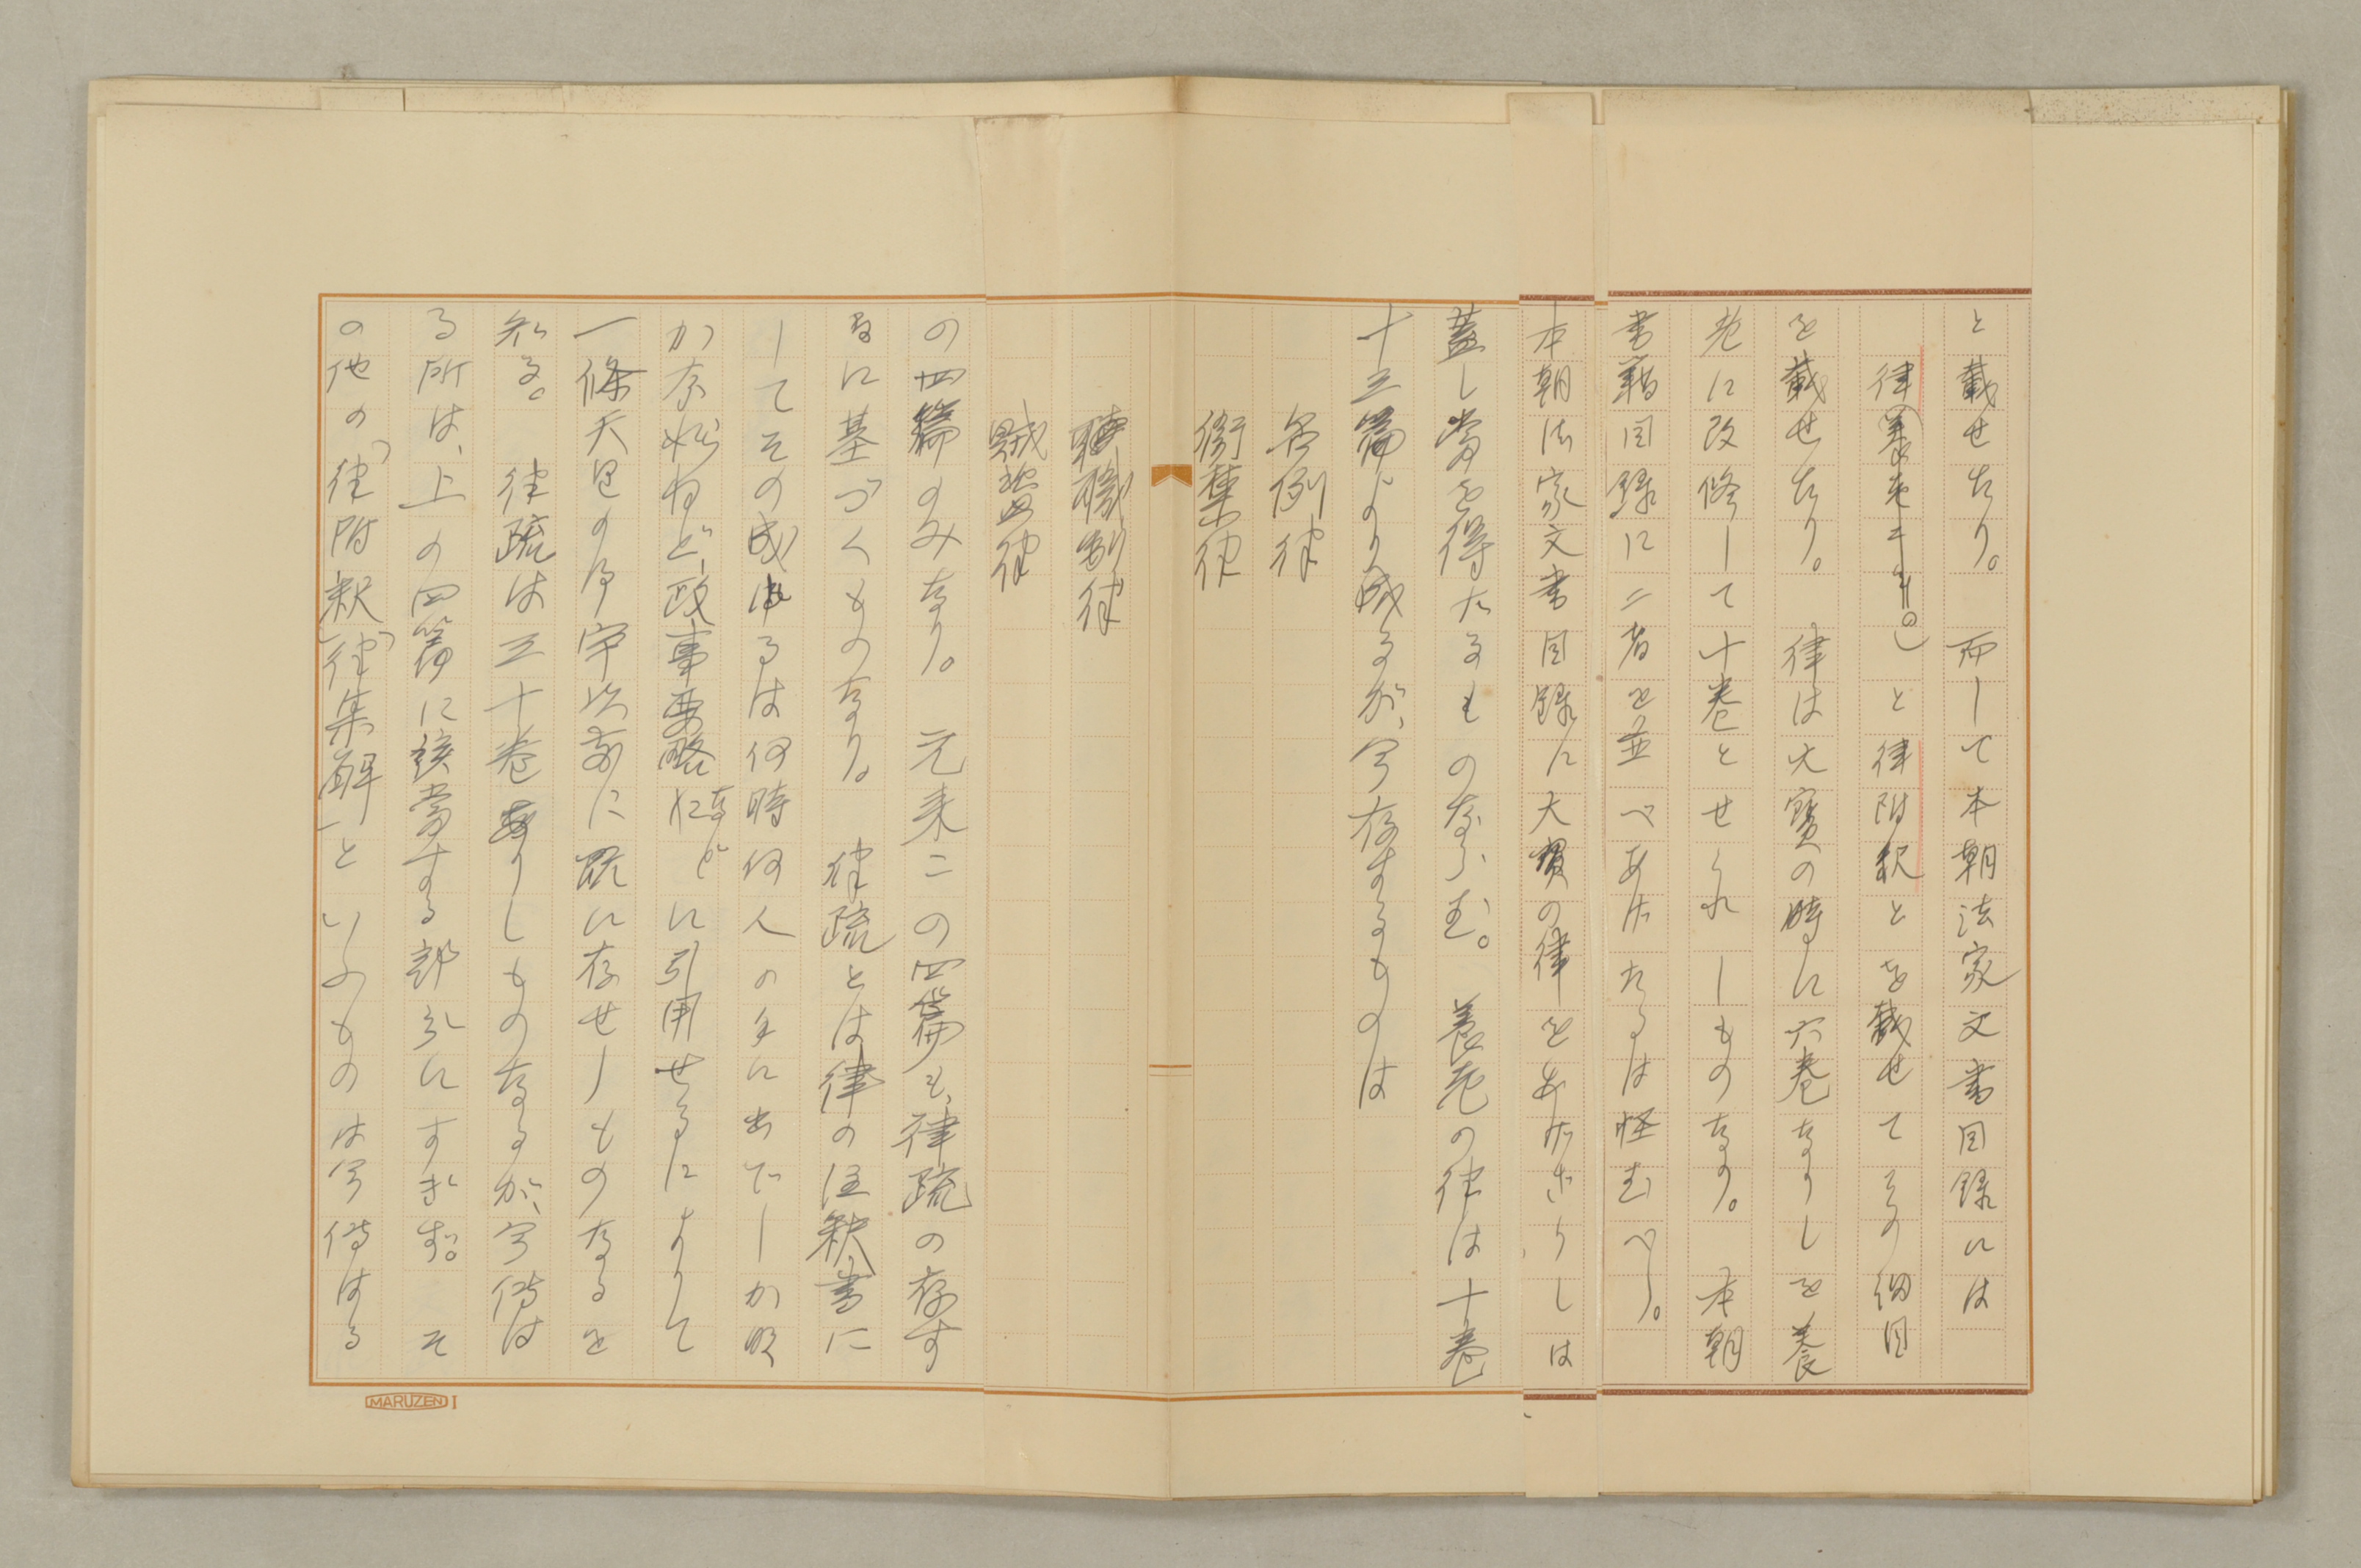 と載せたり。　而して本朝法家文書目録には
律(養老二年。)と律附釈とを載せてその細目
を載せたり。　律は大寳の時に六巻なりしを養
老に改修して十巻とせられしものなり。　本朝
書籍目録に二者を並べあげたるは怪むべし。
本朝法家文書目録に大寳の律をあげざりしは
蓋し當を得たるものならむ。　養老の律は十巻
十三篇より成るが、今存するものは
名例律
衛禁律
職制律
賊盗律
の四篇のみなり。　元来この四篇も、律疏の存す
るに基づくものなり。　律疏とは律の注釈書に
してその成れるは何時何人の手に出でしか明
かならねど、政事要略などに引用せるによりて
一條天皇の御宇以前に既に存せしものなるを
知る。　律疏は三十巻ありしものなるが、今傳は
る所は、上の四篇に該當する部分にすぎず。　そ
の他の「律附釈」「律集解」といふものは今傳はる
MARUZEN I